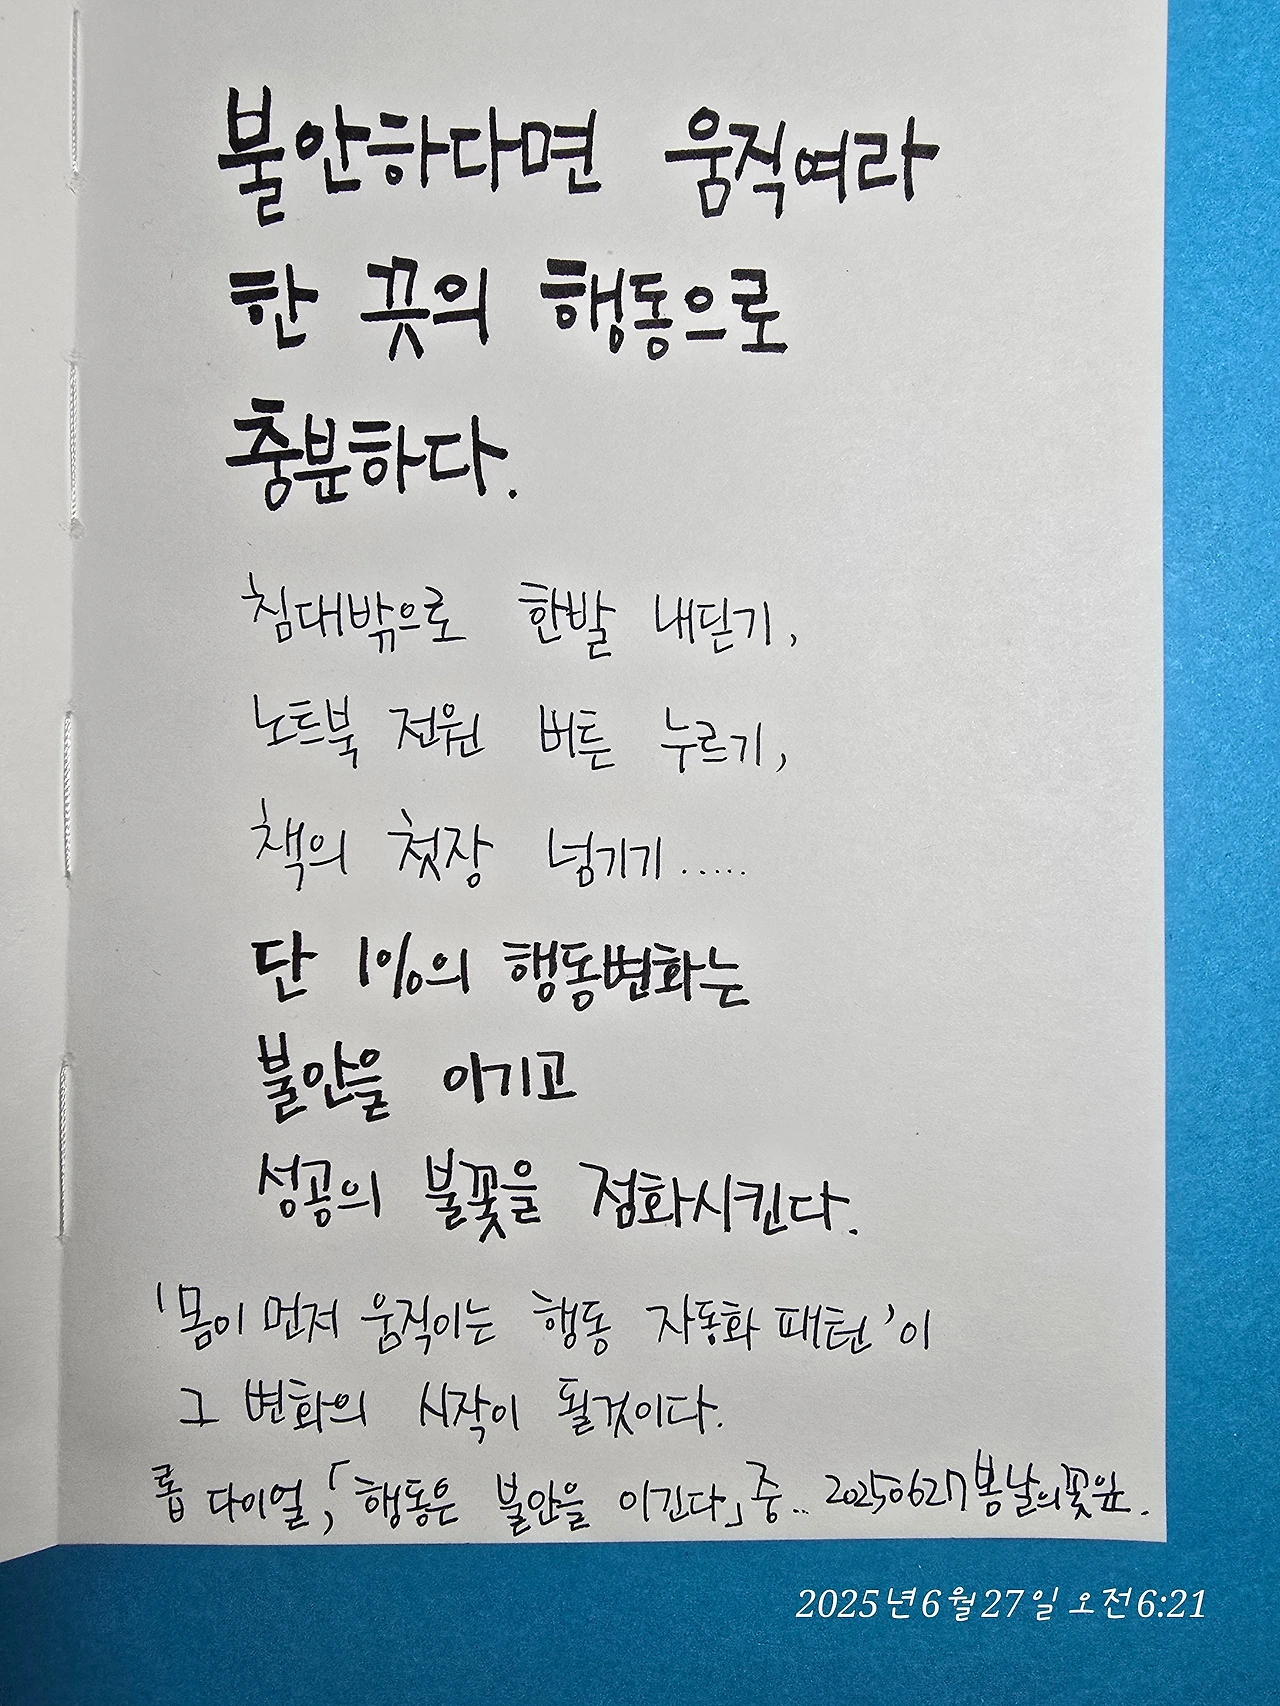 불안하다면 움직여라
한 끗의 행동으로
충분하다.
침대밖으로 한발 내딛기,
노트북 전원 버튼 누르기,
책의 첫장 넘기기.....
단 1%의 행동변화는
불안을 이기고
성공의 불꽃을 점화시킨다.
'몸이 먼저 움직이는 행동 자동화 패턴'이
그 변화의 시작이 될것이다.
롭 다이얼,「행동은 불안을 이긴다」중.. 20250627 봄날의꽃잎.
2025년 6월 27일 오전 6:21